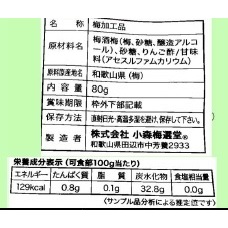 名称 梅加工品
原材料名 梅酒梅(梅、砂糖、醸造アルコ
ール)、砂糖、りんご酢/甘味
料(アセスルファムカリウム)
原料原産地名 和歌山県(梅)
内容量 80g
賞味期限 枠外下部記載
保存方法 直射日光・高温多湿を避け、保存して下さい。
製造者 株式会社 小森梅選堂®
和歌山県田辺市中芳養2933
栄養成分表示(可食部100g当たり)
エネルギー たんぱく質 脂質 炭水化物 食塩相当量
129kcal 0.8g 0.1g 32.8g 0.0g
(サンプル品分析による推定値です)